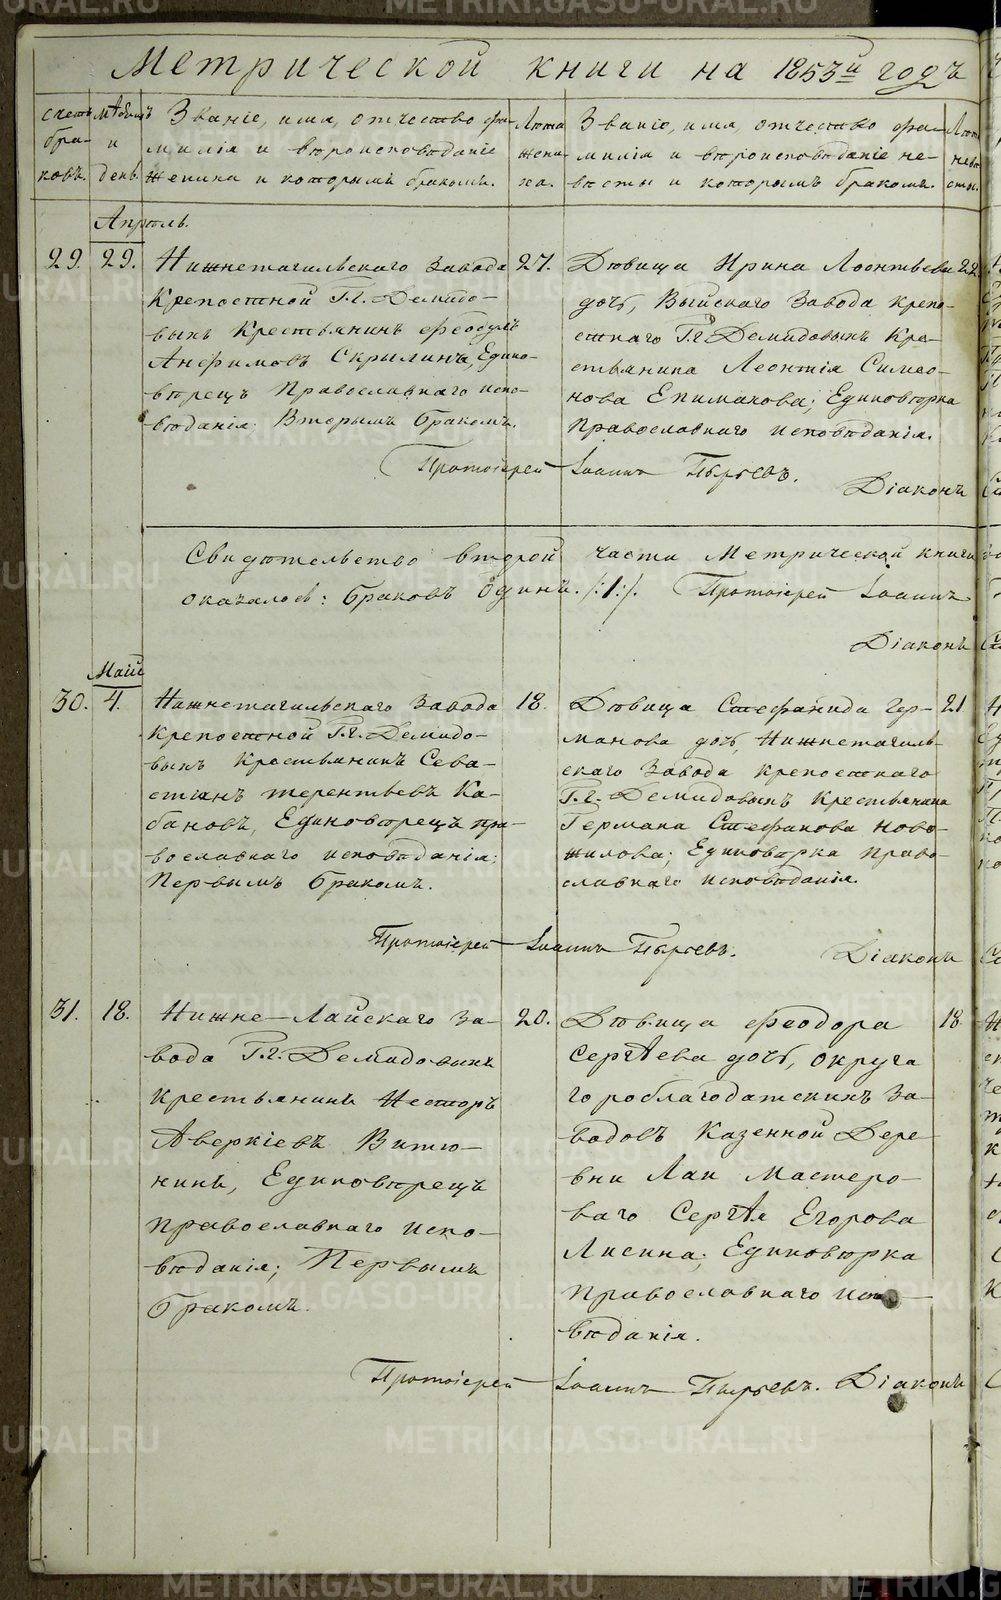 Метрической книги на 1853й годъ
Счетъ браковъ.
Мѣсяцъ и день.
Званіе, имя, отчество, фамилія и вѣроисповѣданіе жениха и которымъ бракомъ.
Лѣта жениха.
Званіе, имя, отчество фамилія и вѣроисповѣданіе невѣсты и которымъ бракомъ.
Лѣта невѣсты.
Апрѣль.
29. 29.
Нижнетагильскаго Завода
Крепостной Г.г. Демидо-
выхъ Крестьянинъ Феодулъ
Анфимовъ Скрылинъ, Едино-
вѣрецъ Православнаго испо-
вѣданія: Вторымъ бракомъ.
27.
Дѣвица Ирина Леонтьева
дочь, Выйскаго Завода крепо-
стнаго Г.г. Демидовыхъ Кре-
стьянина Леонтія Симео-
нова Епимахова; Единовѣрка
Православнаго исповѣданія.
22.
Протоіерей Іоаннъ Пырьевъ.
Діаконъ
Свидѣтельство второй части Метрической книги
оказалось: браковъ Одинъ. /:1:/. Протоіерей Іоаннъ
Діаконъ
Май
30. 4.
Нижнетагильскаго Завода
Крепостной Г.г. Демидо-
выхъ Крестьянинъ Сева-
стіанъ терентьевъ Ка-
бановъ, Единовѣрецъ пра-
вославнаго исповѣданія;
Первымъ бракомъ.
18.
Дѣвица Стефанида Гер-
манова дочь, Нижнетагиль-
скаго Завода крепостнаго
Г.г. Демидовыхъ Крестьянина
Германа Стефанова Ново-
жилова; Единоварка Право-
славнаго исповѣданія.
21
Протоіерей Іоаннъ Пырьевъ.
Діаконъ
31. 18.
Нижне-Лайскаго За-
вода Г.г. Демидовыхъ
крестьянинъ Несторъ
Аверкіевъ Витю-
нинъ, Единовѣрецъ
православнаго испо-
вѣданія; Первымъ
бракомъ.
20.
Дѣвица Феодора
Сергѣева дочь, округа
гороблагодатскихъ За-
водовъ Казенной Дере-
вни Лаи Мастеро-
ваго Сергѣя Егорова
Лисина; Единовѣрка
Православнаго испо-
вѣданія.
18
Протоіерей Іоаннъ Пырьевъ. Діаконъ
METRIKI.GASO-URAL.RU